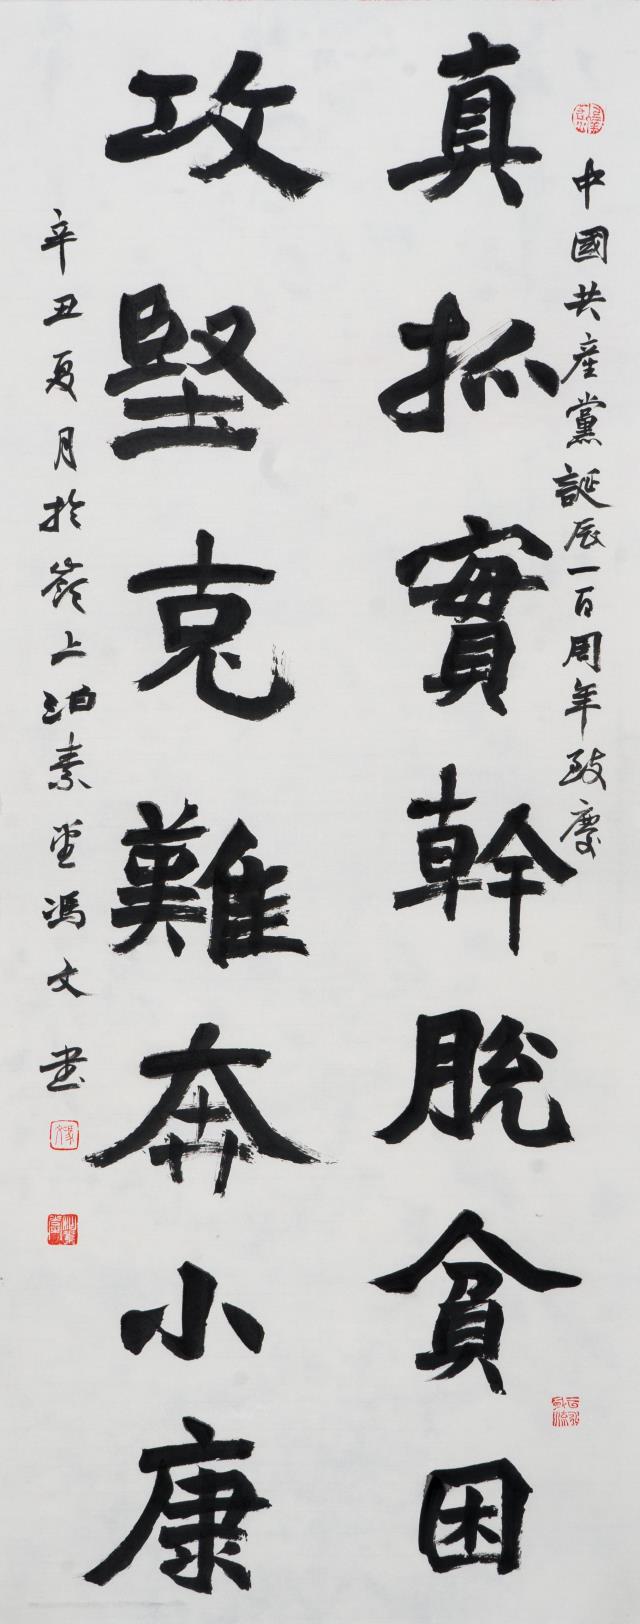 中國共產黨誕辰一百周年致慶
真抓實幹脫貧困
攻堅克難奔小康
辛丑夏月於嶺上泊素堂馮文書